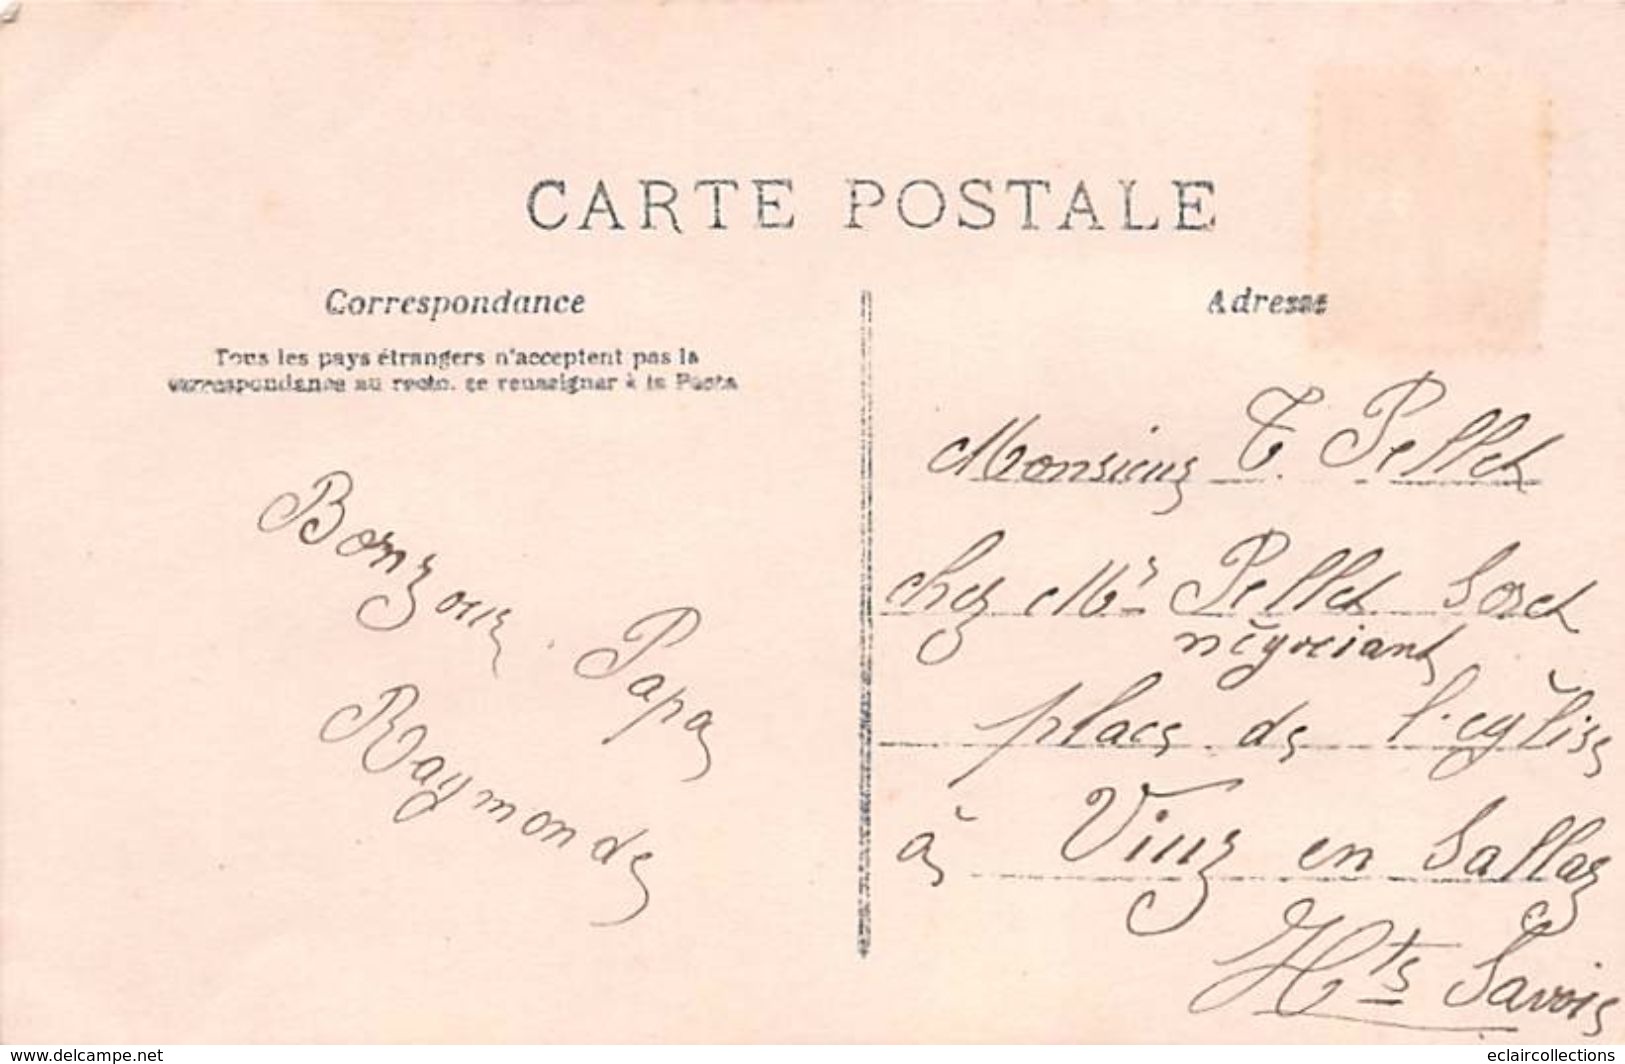 CARTE POSTALE
Correspondance
Tous les pays étrangers n'acceptent pas la
correspondance au recto. se renseigner à la Poste
Bonjour Papa
Raymonde
Adresse
Monsieur T. Pellet
chez Mr Pellet Soret
négociant
place de l'église
à Viuz en Sallaz
Hte Savoie
www.delcampe.net
eclaircollections